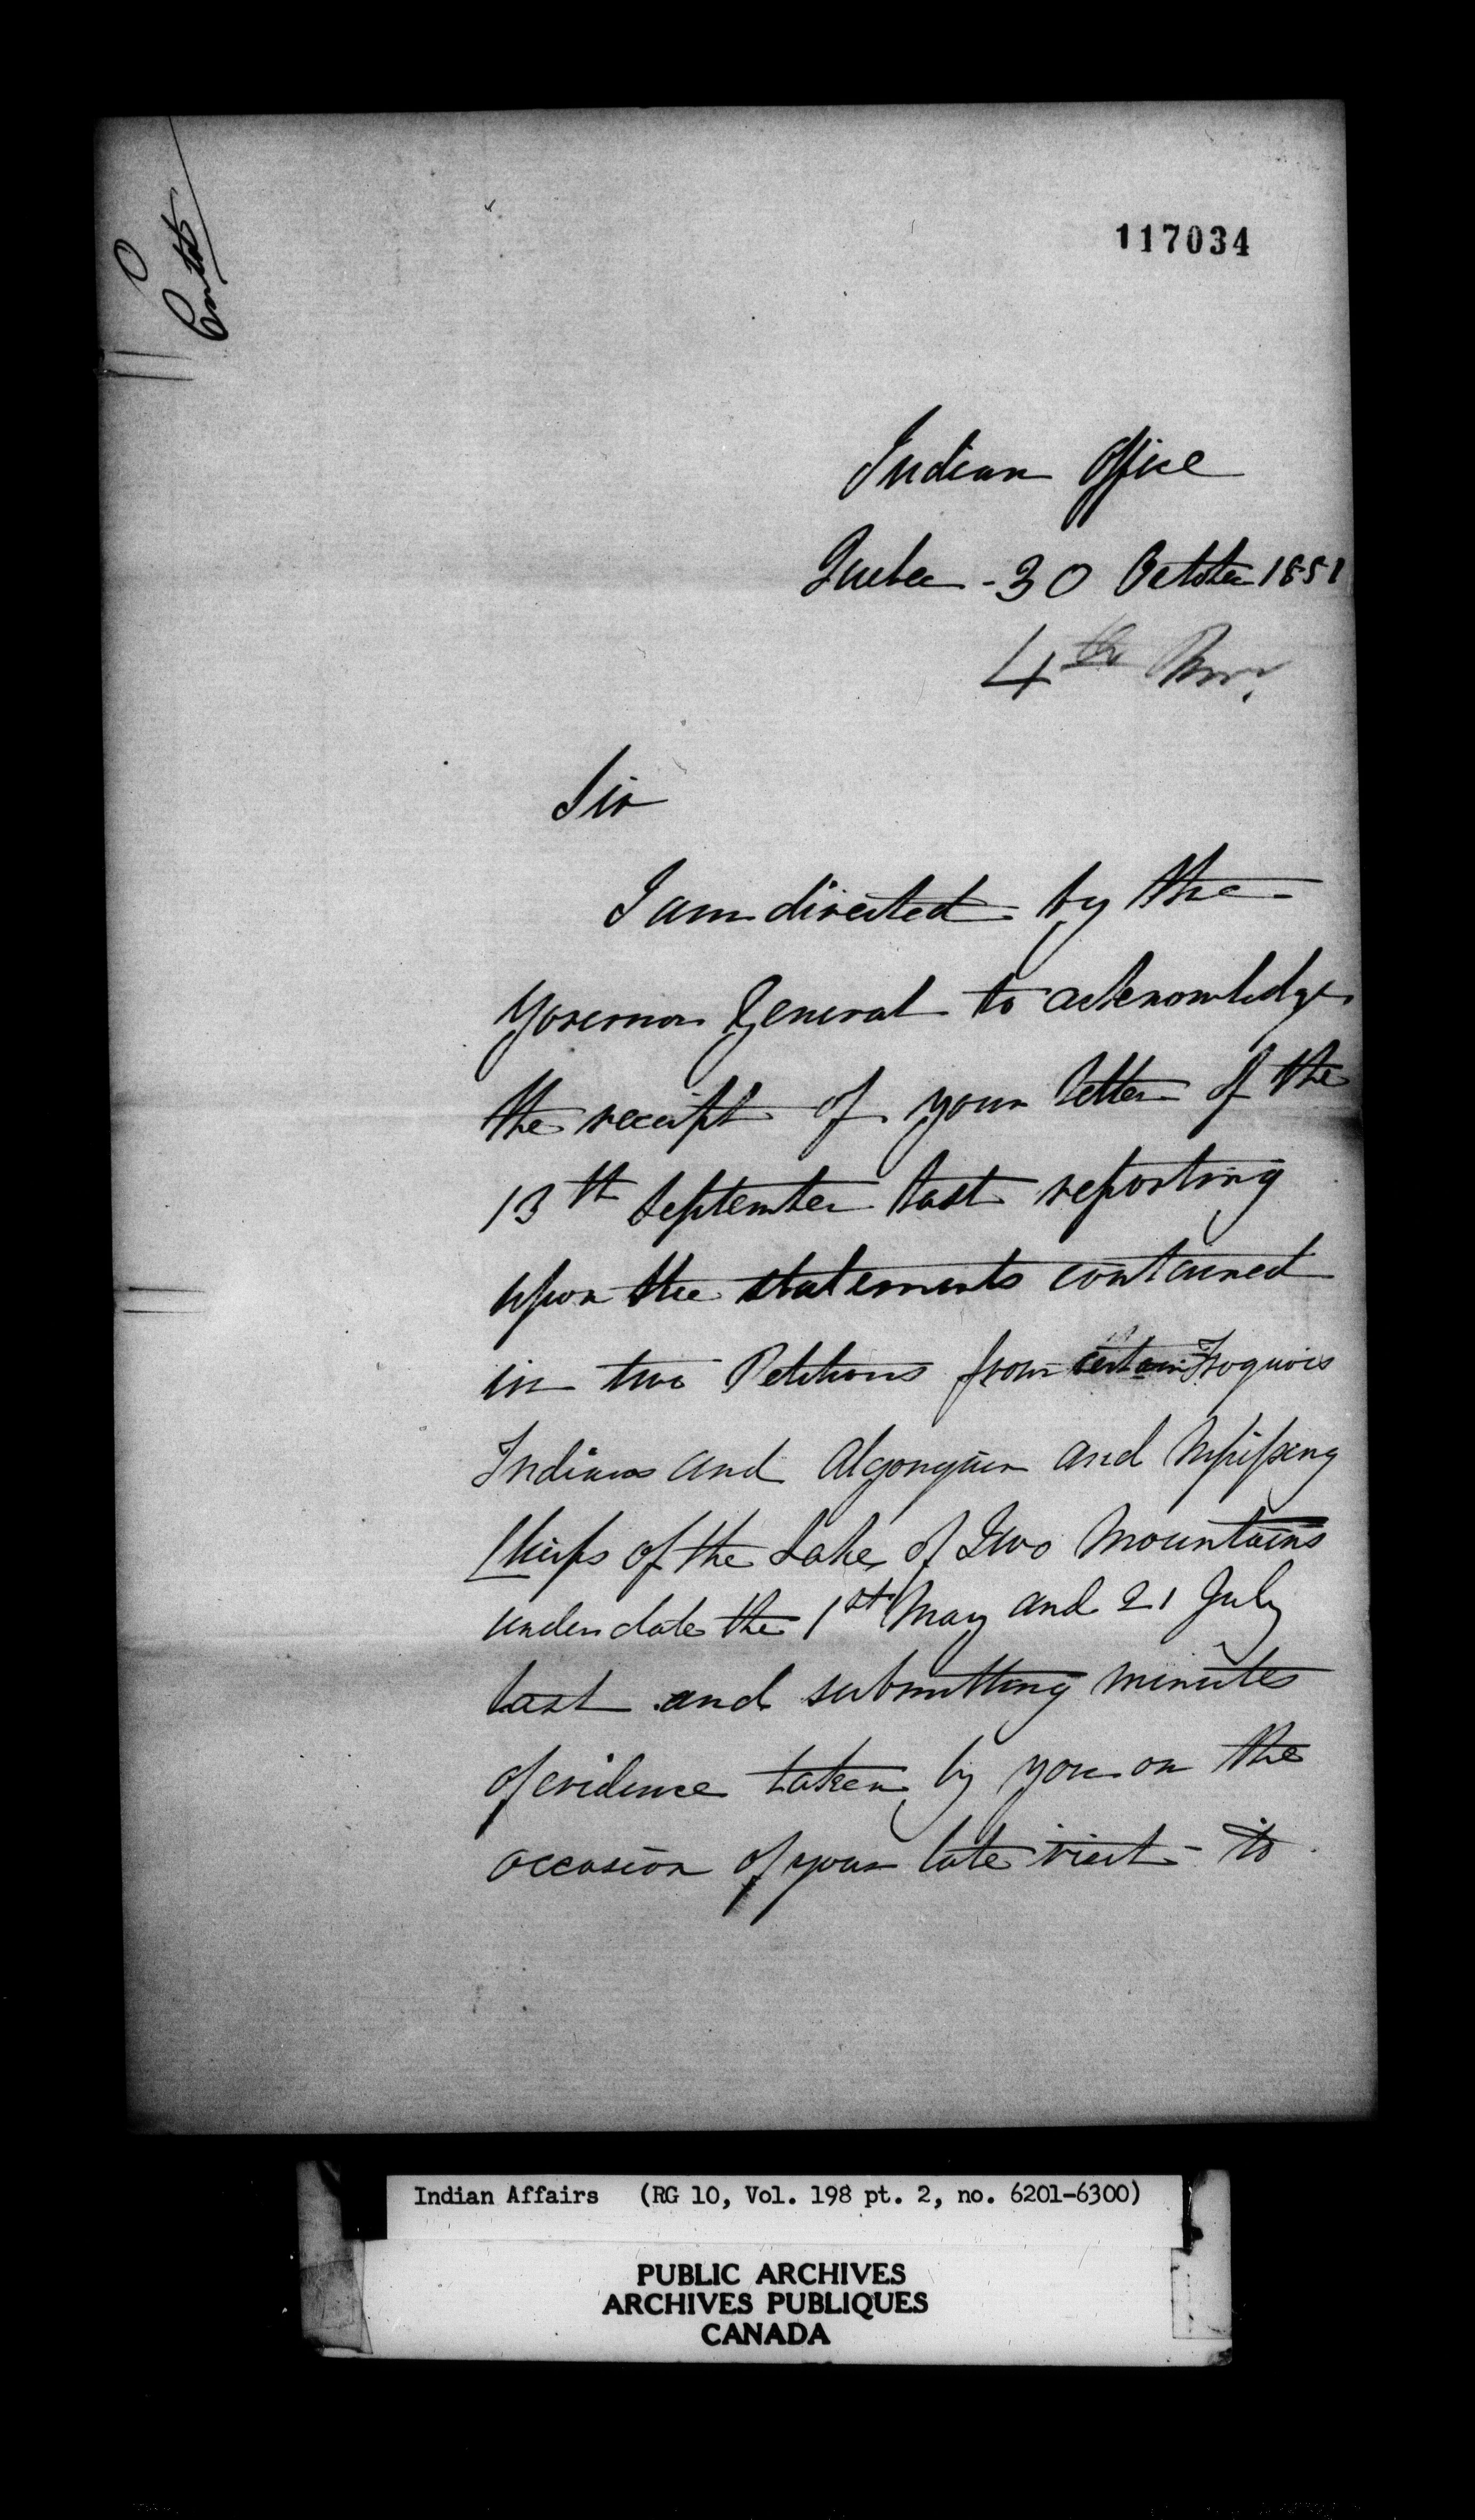 Entd
117034
Indian Office
Quebec - 30 October 1851
4th Novr.
Sir
I am directed by the
Governor General to acknowledge
the receipt of your letter of the
13th September last reporting
upon the statements contained
in two Petitions from certain Iroquois
Indians and Algonquin and Nipissing
Chiefs of the Lake of Two Mountains
under date the 1st May and 21 July
last and submitting minutes
of evidence taken by you on the
occasion of your late visit to
Indian Affairs (RG 10, Vol. 198 pt. 2, no. 6201-6300)
PUBLIC ARCHIVES
ARCHIVES PUBLIQUES
CANADA